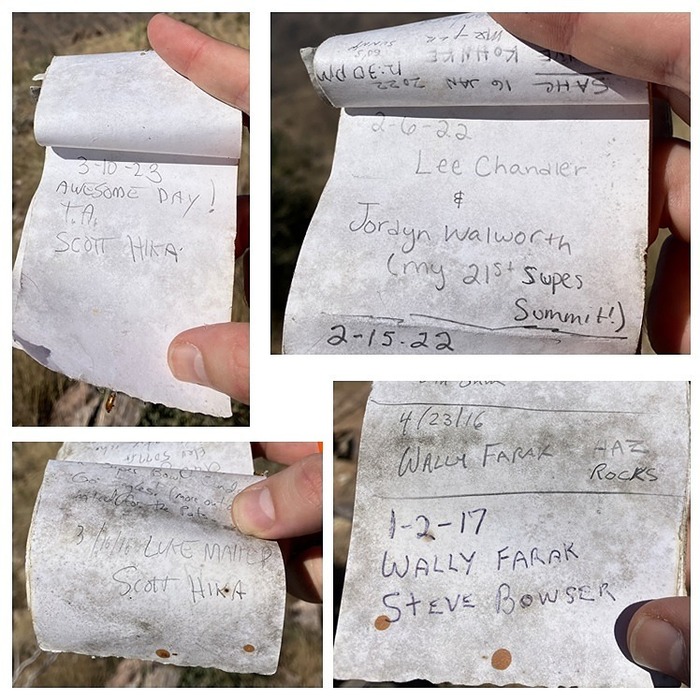 3-10-23
AWESOME DAY!
T.A.
SCOTT HIKA
SAHC 16 JAN 2022 12:30 PM
KOHNKE
2-6-22
Lee Chandler
&
Jordyn Walworth
(my 21st Supes
Summit!)
2-15-22
3/16/16 LUKE
SCOTT HIKA
4/23/16
WALLY FARAK HAZ
ROCKS
1-2-17
WALLY FARAK
STEVE BOWSER